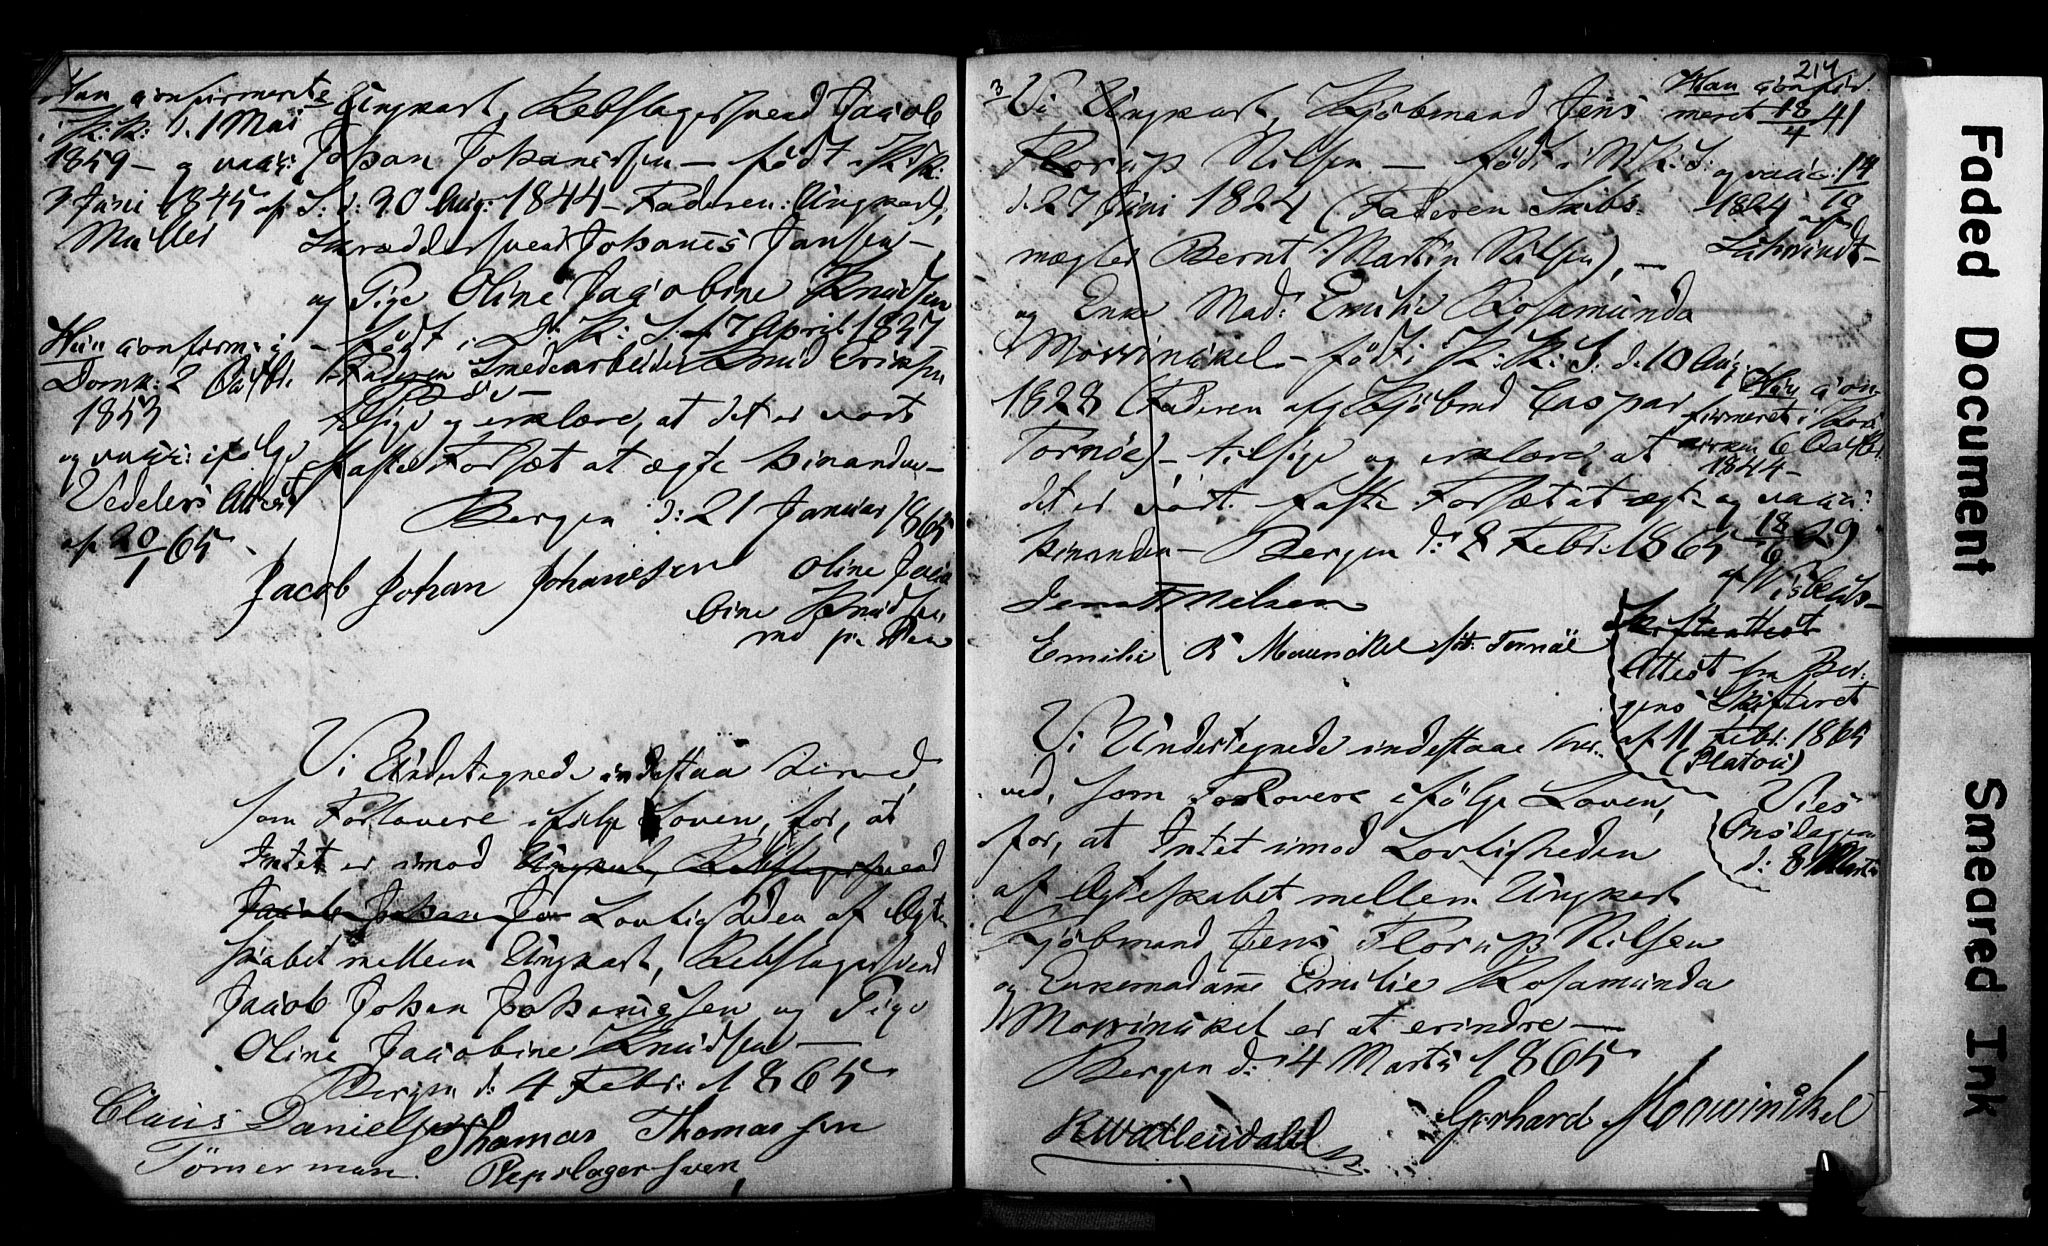 Han confirmerte
i K: K: d. 1 Mai
1859 – og vacc:
3 Juni 1845 af
Müller
Ungkarl, Rebslagersvend Jacob
Johan Johanessen – født i K: K:
S: d: 20 Aug: 1844 – Faderen: Ungkarl,
Skræddersvend Johanes Jansen –
og Pige Oline Jacobine Knudsen
– født i D. K: S. d 7 April 1837
Faderen Smedearbeider Knud Eriksen
Hun confirm: i
Domk: 2 Octbr.
1853
og vacc: ifølge
Vedelers Attest
af 20/1 65
tilsige og erklære, at det er vort
faste Forsæt at ægte hinanden –
Bergen d: 21 Januar 1865
Jacob Johan Johanesen Oline Jaco
bine Knudsen
med p. Pen
Vi Undertegnede indestaa herved,
som Forlovere ifølge Loven, for, at
Intet er imod Ungkarl, Rebslagersvend
Jacob Johan Jo Lovligheden af Ægte
skabet mellem Ungkarl, Rebslagersvend
Jacob Johan Johanessen og Pige
Oline Jacobine Knudsen –
Bergen d: 4 Febr: 1865
Claus Danielsen Thomas Thomassen
Tømerman. Repslagersven,
214
3
Vi Ungkarl, Kjøbmand Jens
Florup Nilsen – født i N: K: S:
d. 27 Juni 1824 (Faderen Skibs-
mægler Bernt Martin Nilsen), –
og Enke Mad: Emilie Rosamunda
Mowinckel – født i K: K: S. d. 10 Aug:
1828 (Faderen afg Kjøbmd Caspar
Tornöe) – tilsige og erklære, at
det er vort faste Forsæt at ægte
hinanden – Bergen d: 8 Febr: 1865
Jens F Nilsen
Emilie R Mowinckel født Tornöe
Han confir-
meret 18/4 41
og vacc: 14/10
1824 af
Schwindt –
Hun con-
firmeret i Kors
kirken 6 Octbr.
1844 –
og vacc:
18/6 29
af Wisbech –
Skifteattest
Attest fra Ber-
gens Skifteret
af 11 Febr: 1865
(Platou)
Vies
Onsdagen
d: 8 Marts
Vi Undertegnede indestaae her-
ved, som Forlovere ifølge Loven,
for, at Intet imod Lovligheden
af Ægteskabet mellem Ungkarl
Kjøbmand Jens Florup Nilsen
og Enkemadame Emilie Rosamunda
Mowinckel er at erindre –
Bergen d: 4 Marts 1865
R Wallendahl Gerhard Mowinckel
Faded Document
Smeared Ink